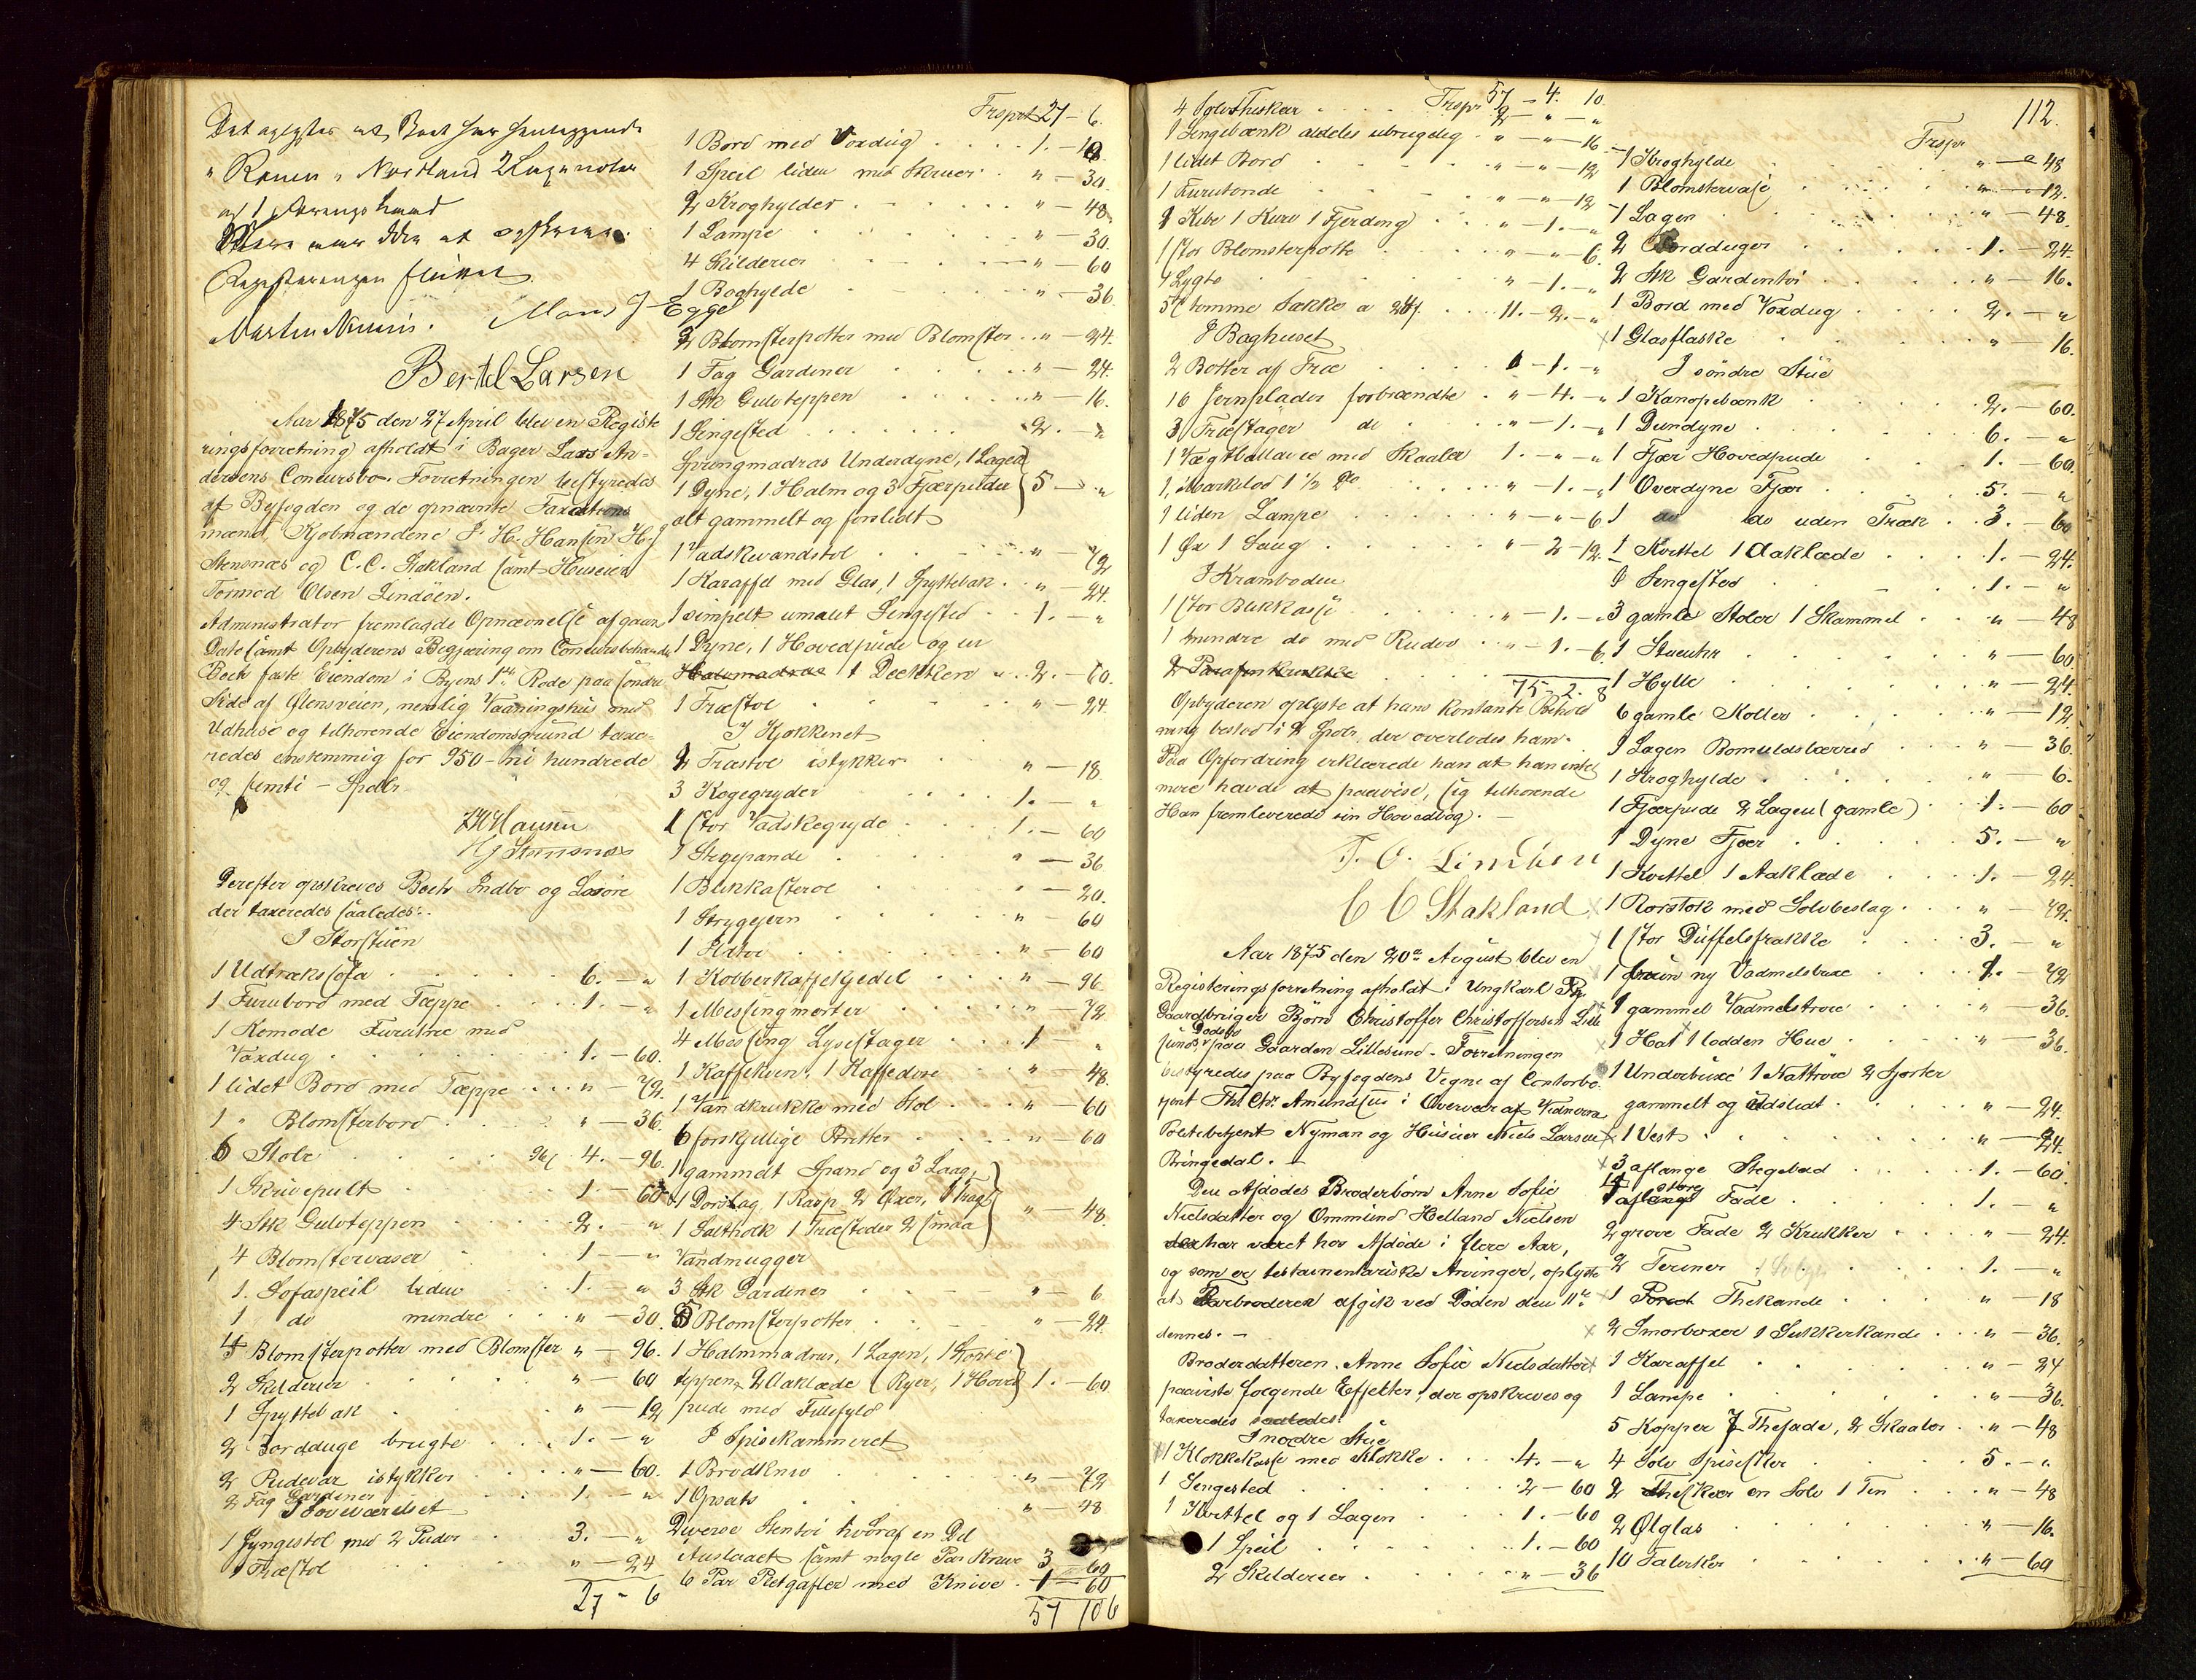 Det oplystes at Boet har henliggende
Nordland 2
af 1
Martin Mons J Egge
Bertel Larsen
Aar 1875 den 27 April blev en Registe
ringsforretning afholdt i Bager Lars An-
dersens Concursbo. Forretningen bestyredes
af Byfogden og de opnævnte Taxations
mænd, Kjøbmændene J. H. Hansen H. J.
Stensnæs og C. C. Stakland samt Huseier
Tormod Olsen Lindøen.
Administrator fremlagde Opnævnelse af gaars
Dato samt Opbyderens Begjæring om Concursbehandl.
Boets faste Eiendom i Byens 1ste Rode paa søndre
Side af veien, nemlig Vaaningshus med
Udhuse og tilhørende Eiendomsgrund taxe-
redes enstemmig for 950 - ni hundrede
og femti - Spdlr.
J H Hansen
H J Stensnæs
Derefter opskreves Boets Indbo og Løsøre
der taxeredes saaledes:
I Storstuen
1 Udtrækssofa 6. - "
1 Furubord med Tæppe 1. - "
1 Komode Furutræ med
Voxdug 1. - 60.
1 lidet Bord med Tæppe " - 72.
1 " Blomsterbord " - 36.
6 Stole 4. - 96.
1 Skrivepult 1 - 60
4 Stk Gulvteppen 2. - "
4 Blomstervaser 1 - "
1. Sofaspeil liden 1. - "
1 do mindre " - 30.
4 Blomsterpotter med Blomster " - 96.
2 Skilderier " - 60
1 Spyttebak " - 12
2 Bordduge brugte 1. - "
2 Pudevar istykker " - 60.
2 Fag Gardiner 1. - "
I Soveværelset
1 Gyngestol med 2 Puder 3. - "
1 Træstol " - 24
27 - 6
Trsprt 27 - 6.
1 Bord med Voxdug 1. - 18.
1 Speil liden med Skuer " - 30.
2 Kroghylder " - 48.
1 Lampe " - 30.
4 Skilderier " - 60
1 Boghylde " - 36.
2 Blomsterpotter med Blomster " - 24.
1 Fag Gardiner " - 24.
1 Stk Gulvteppen " - 16.
1 Sengested 2. - "
Springmadras Underdyne, 1 Lagen
1 Dyne, 1 Halm og 3 Fjærpuder 5 - "
alt gammelt og forslidt
1 Vadskevandstol " - 72
1 Karaffel med Glas, 1 Spyttebak " - 24.
1 simpelt umalet Sengested 1. - "
1 Dyne, 1 Hovedpude og en
Halmmadras 1 Dækken 2. - 60.
1 Træstol " - 24.
I Kjøkkenet
2 Træstole istykker " - 18.
3 Kogegryder 1. - "
1 stor Vadskegryde 1. - 60
1 Stegepande " - 36
1 Blikkasterol " - 20.
1 Strygejern " - 60
1 " - 60
1 Kobberkaffekjedel " - 96
1 Messingmorter " - 72
4 Messing Lysestager 1 - "
1 Kaffekvern, 1 Kaffedose " - 48.
1 Vandkrukke med Stol " - 60
6 forskjellige Bøtter " - 60
1 gammelt Spand og 3 Laag,
1 Dørslag 1 Rasp 2 Øxer, 1 Tragt
1 Saltholk 1 Træsteder 2 smaa " - 48
Vandmugger
3 Stk Gardiner " - 6
5 Blomsterpotter " - 24.
1 Halmmadras, 1 Lagen, 1
teppen 2 Aaklæde (Ryer, 1 Hoved 1. - 60
pude med Fillefyld
I Spisekammeret
1 Brødkniv " - 72
1 Opsats " - 48
Diverse Stentøi hvoraf en Del
Anslaaet samt nogle Par Knive 3 60
6 Par Bordgafler med Knive 1 - 60
57 106
Trspr 57 - 4. 10.
4 Sølvtheskeer 2 " "
1 Sengebænk aldeles ubrugelig " - " - 16
1 lidet Bord " - " - 12
1 Furutønde " - " - 12
1 Kibe 1 Kurv 1 Fjerding " - 1. - "
1 stor Blomsterpotte " - " - 6.
4 Lygte " - 1. - "
57 tomme Sække a 24ß 11. - 2. - "
I Baghuset
2 Bøtter af Træ " - 1. - "
16 Jernplader forbrændte " - 4. - "
3 Træstager do " - 1. - "
1 Væg Ballance med Skaaler 1. - " - "
1, " - 1. - "
1 liden Lampe " - " - 6
1 Øx 1 Saug " - 2 - 12.
I Kramboden
1 stor Blikkasse " - 1. - "
1 mindre do med Ruder " - 1. - 6.
2 Parafinkrukker
75. 2. 8
Opbyderen oplyste at hans kontante Behold
ning bestod i 2 Spdlr, der overlodes ham.
Paa Opfordring erklærede han at han intet
mere havde at paavise, sig tilhørende
Han fremleverede sin Hovedbog. -
T. O. Lindøen
C C Stakland
Aar 1875 den 20de August blev en
Registeringsforretning afholdt i Ungkarl
Gaardbruger Bjørn Christoffer Christoffersen Lille
sunds Dødsbo paa Gaarden Lillesund. Forretningen
bestyredes paa Byfogdens Vegne af Contorbe-
tjent Th. Chr. Amundsen i Overvær af Vidnerne
Politibetjent Nyman og Huseier Niels Larsen
Bringedal. -
Den Afdødes Broderbørn Anne Sofie
Nielsdatter og Ommund Helland Nielsen
der har været hos Afdøde i flere Aar,
og som er testamentariske Arvinger, oplyste
at Farbroderen afgik ved Døden den 11te
dennes. -
Broderdatteren Anne Sofie Nielsdatter
paaviste følgende Effekter, der opskreves og
taxeredes saaledes:
I nordre Stue
1 Klokkekasse med Klokke 4. - "
1 Sengested 2 - 60
1 Kvittel og 1 Lagen 1. - 60
1 Speil 1. - 60
2 Skilderier " - 36
112.
Trspr
1 Kroghylde " - " 48
1 Blomstervase " - 12.
1 Lagen " - 48.
2 Bordduger 1. - 24.
2 Stk Gardentøi " - 16.
1 Bord med Voxdug 2. - "
1 Glasflaske " - 16.
I søndre Stue
1 Kanapebænk 2. - 60.
1 Dundyne 6. - "
1 Fjær Hovedpude 1. - 60.
1 Overdyne Fjær 5. - "
1 do do uden Træk 3. - 60
1 Kvittel 1 Aaklæde 1. - 24.
1 Sengested 1. - "
3 gamle Stoler 1 Skammel " - 48
1 Stueuhr " - 60
1 Hylle " - 24.
6 gamle Koller " - 12
1 Lagen Bomuldslærred " - 36.
1 Kroghylde " - 6.
1 Fjærpude 2 Lagen (gamle) 1. - 60
1 Dyne Fjær 5. - "
1 Kvittel 1 Aaklæde 1. - 24.
1 Rørstok med Sølvbeslag " - 72.
1 stor Düffelsfrakke 3. - "
1 ny Vadmelsbuxe 1. - 72
1 gammel Vadmelstrøie " - 36.
1 Hat 1 lodden Hue " - 36.
1 Underbuxe 1 Nattrøie 2 Skjorter
gammelt og udslidt " - 24.
1 Vest " - 24.
3 aflange Stegefad 1. - 60.
14 store Fade 1. - "
2 grove Fade 2 Krukker " - 24.
2 Teriner 1. - "
1 Thekande " - 18
2 Smørboxer 1 Sukkerkande " - 36.
1 Karaffel " - 24
1 Lampe " - 36.
5 Kopper 7 Thefade, 2 Skaaler " - 48
4 Sølv Spiseskeer 5. - "
2 Theskeer en Sølv 1 Tin " - 48
2 Ølglas " - 16.
10 Talerker " - 60